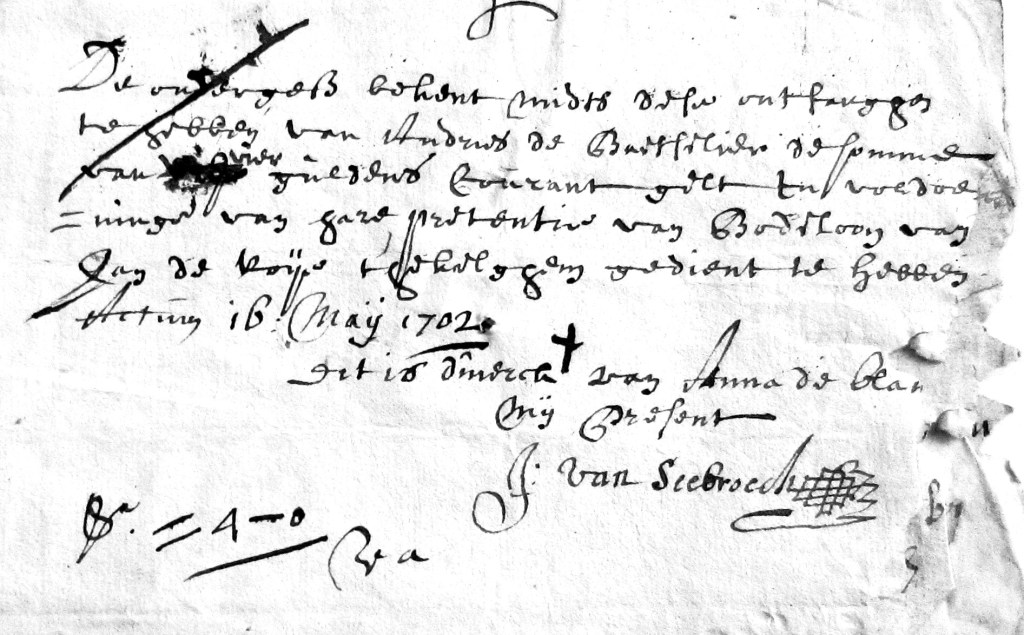 De onderges̃ bekent midts dese ontfanghen
te hebben van Andries de Bachelier de somme
van vier guldens Courant gelt in voldoe
=ninge van hare pretentie van Bodeloon van
Jan de
gedient te hebben
Actum 16: Maij 1702
Dit is d'merck + van Anna de blau
Mij Present
J: van Seebroeck
= 4 - 0